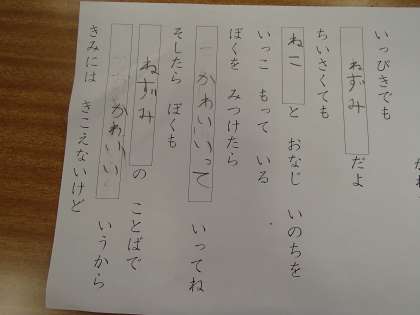 いっぴきでも
ねずみだよ
ちいさくても
ねことおなじいのちを
いっこもっている
ぼくをみつけたら
かわいいっていってね
そしたらぼくも
ねずみのことばで
かわいいいうから
きみにはきこえないけど